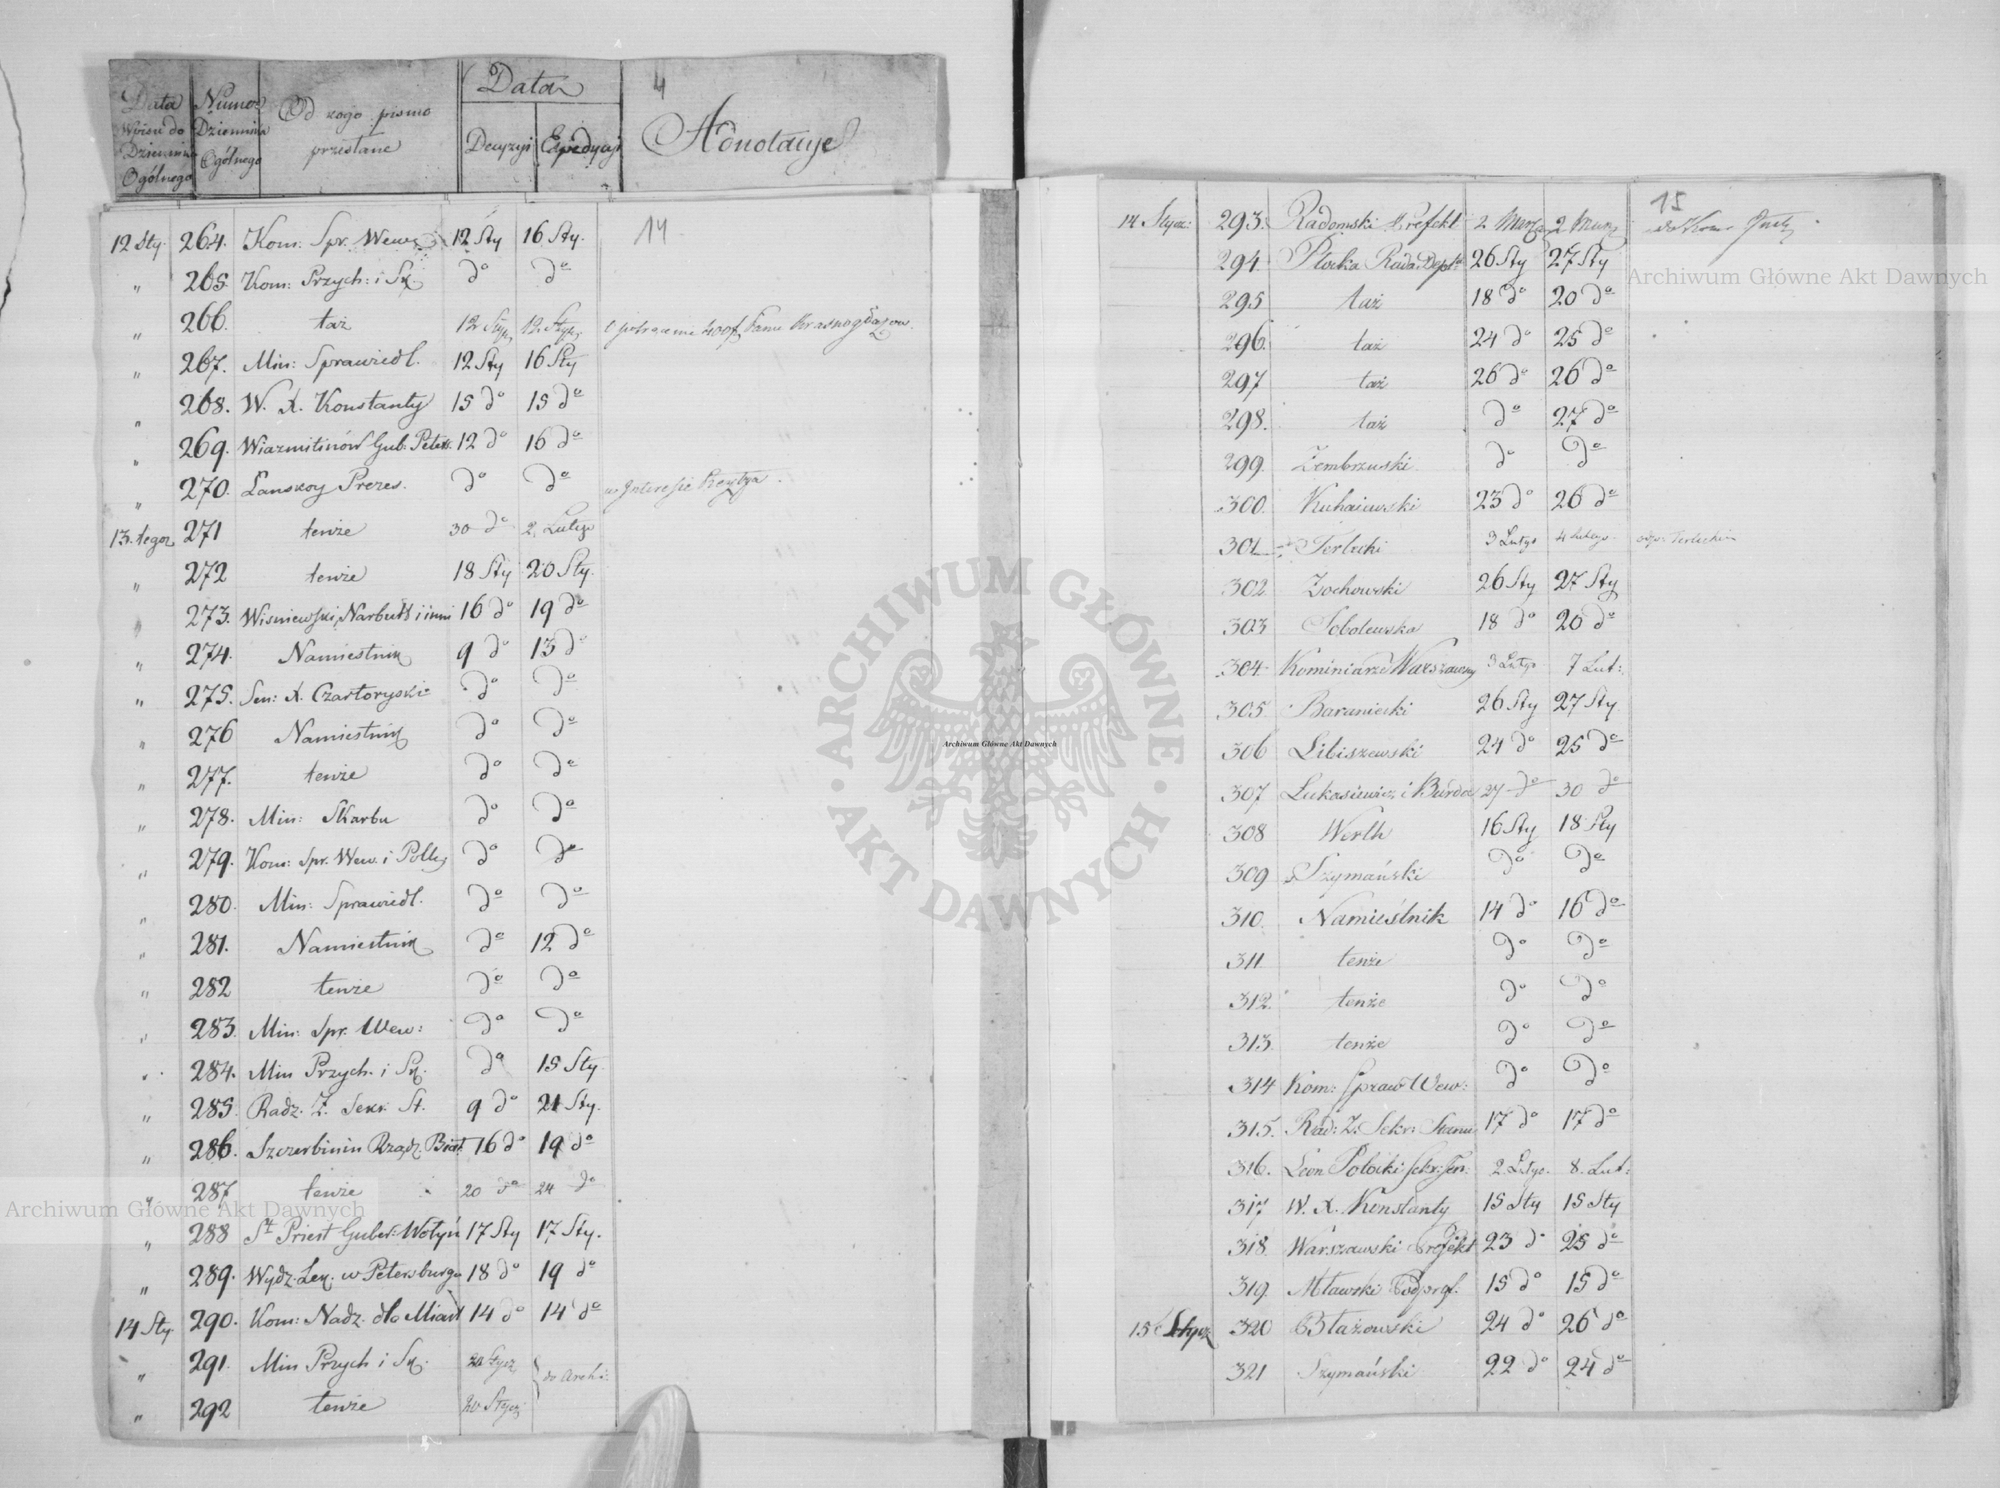 4
Data Wniesi. do Dziennika Ogólnego | Numer Dziennika Ogólnego | Od kogo pismo przysłane | Data Decyzyi | Expedycyi | Adnotacye
14
12 Sty. 264. Kom: Spr. Wew: 12 Sty 16 Sty.
" 265. Kom: Przych: i Sk. do do
" 266. taż 12 Stycz 12 Stycz 400 f Panu
" 267. Min: Sprawiedl. 12 Sty 16 Sty
" 268. W. X. Konstanty 15 do 15 do
" 269. Wiazmitinów Gub: Peters. 12 do 16 do
" 270. Łanskoy Prezes. do do w Interesie
13. tegoż 271 tenże 30 do 2. Lutego
" 272 tenże 18 Sty 20 Sty.
" 273. Wisniewski, Narbutt i inni 16 do 19 do
" 274. Namiestnik 9 do 13 do
" 275. Sen: X. Czartoryski do do
" 276 Namiestnik do do
" 277. tenże do do
" 278. Min: Skarbu do do
" 279. Kom: Spr. Wew. i Polic. do do
" 280. Min: Sprawiedl. do do
" 281. Namiestnik do 12 do
" 282 tenże do do
" 283. Min: Spr. Wew: do do
" 284. Min Przych. i Sk. do 15 Sty
" 285. Radz. Z. Sekr. St. 9 do 21 Sty.
" 286. Szczerbinin Rządz. Biał. 16 do 19 do
" 287 tenże 20 do 24 do
" 288 St Priest Guber: Wołyń 17 Sty 17 Sty.
" 289. Wydz. Lek. w Petersburgu 18 do 19 do
14 Sty. 290. Kom: Nadz. dło Miast 14 do 14 do
" 291. Min Przych i Sk. 20 Stycz do Arch:
" 292 tenże 20 Stycz
15
14 Stycz: 293. Radomski Prefekt 2 Marca 2 Marca do Kom.
294. Płocka Rada Dept. 26 Sty 27 Sty
295 taż 18 do 20 do
296. taż 24 do 25 do
297 taż 26 do 26 do
298. taż do 27 do
299. Zembrzuski do do
300. Kuhaiewski 23 do 26 do
301 Terlecki 3 Lutego 4 Lutego
302 Zochowski 26 Sty 27 Sty
303 Sobolewska 18 do 20 do
304 Kominiarze Warszawscy 3 Lutego 7 Lut:
305 Baraniecki 26 Sty 27 Sty
306 Libiszewski 24 do 25 do
307 Łukasiewicz i Burda 27 do 30 do
308 Werth 16 Sty 18 Sty
309 Szymański do do
310. Namieśtnik 14 do 16 do
311 tenże do do
312. tenże do do
313. tenże do do
314 Kom: Spraw Wew: do do
315. Rad: Z. Sekr: Stanu 17 do 17 do
316. Leon Potocki Sekr: Sen: 2 Lutego 8. Lut:
317 W. X. Konstanty 15 Sty 15 Sty
318. Warszawski Prefekt 23 do 25 do
319. Mławski Podpref. 15 do 15 do
15 Stycz 320 Błażowski 24 do 26 do
321 Szymański 22 do 24 do
Archiwum Główne Akt Dawnych
Archiwum Główne Akt Dawnych
Archiwum Główne Akt Dawnych
ARCHIWUM GŁÓWNE · AKT DAWNYCH ·